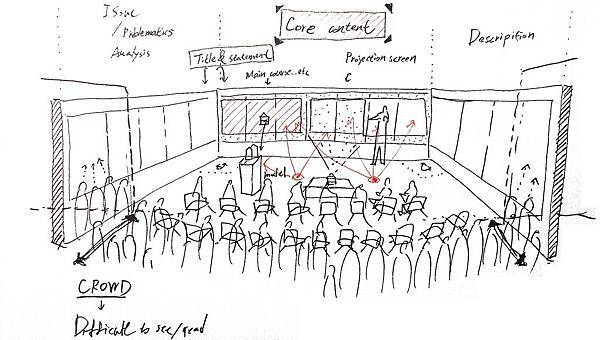 Issue
/ Problematics
Analysis
Core content
Description
Title & statement
Main course..etc
Projection screen
C
model
CROWD
Difficult to see/read